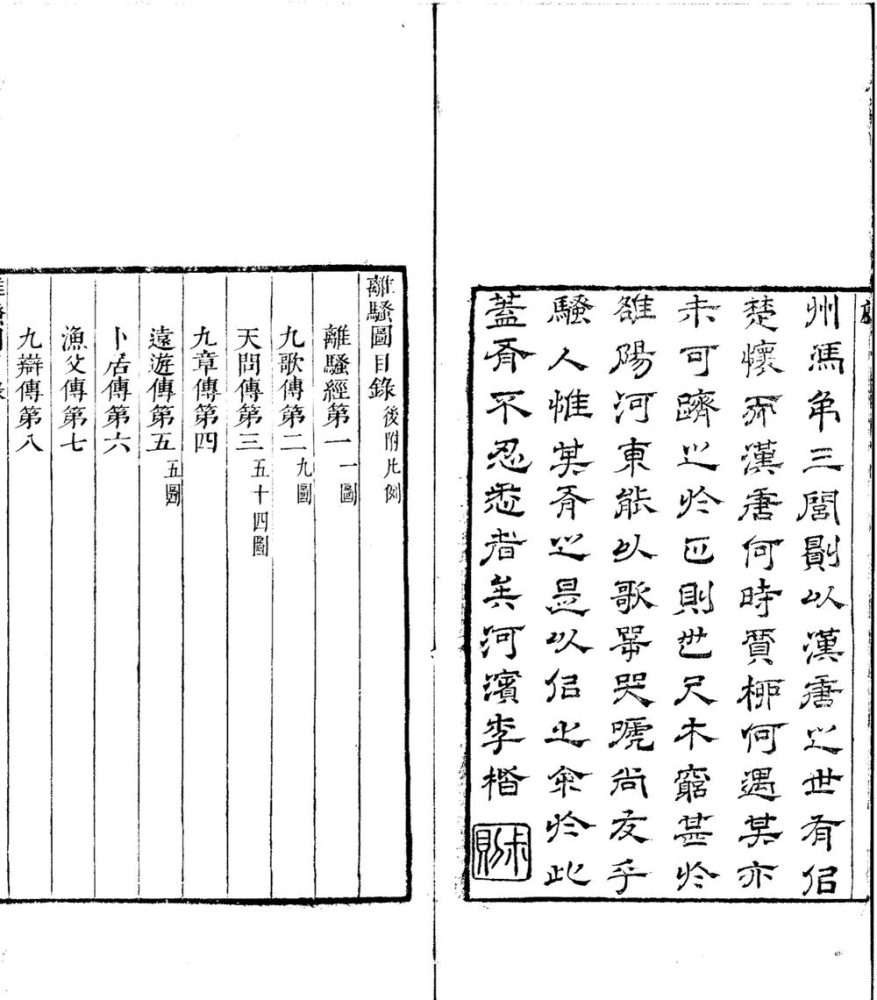 州馮弔三閭則以漢唐之世有侣
楚懷而漢唐何時賈栁何遇其亦
未可躋之於則世尺木窮甚於
雒陽河東能以歌咢哭嘑尚友乎
騷人惟其有之是以侣之余於此
蓋有不忍悉者矣河濱李楷
叔則
離騷圖目錄 後附凡例
離騷經第一 一圖
九歌傳第二 九圖
天問傳第三 五十四圖
九章傳第四
遠遊傳第五 五圖
卜居傳第六
漁父傳第七
九辯傳第八